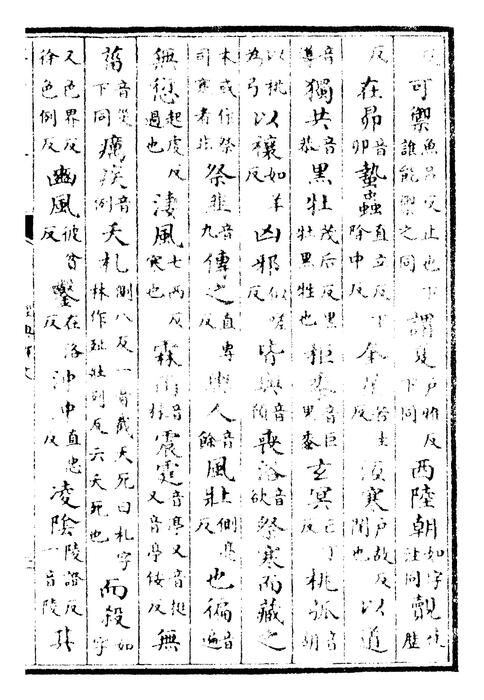 可禦魚呂反止也下誰能禦之同謂夏戶雅反下同西陸朝如字注同覿徒歷
反在昴音卯蟄蟲直立反下除中反奎苦圭反沍寒戶故反閉也以道
音導獨共音恭黑牡茂后反黑牡黑牲也秬黍音巨黑黍玄冥亡丁反桃弧音胡
以桃為弓以禳如羊反凶邪似嗟反皆與音預喪浴音欲祭寒而藏之
本或作祭司寒者非祭韭音九傳之直專反輿人音餘風壯側亮反也徧音遍
無愆起虔反過也淒風七西反寒也霖雨音林震霆音亭又音挺又音亭佞反無
菑音災下同癘疾音例夭札側八反一音截夭死曰札字林作壯列反云夭死也而殺如字
又色界反徐色例反豳風彼貧反鑿在洛反沖沖直忠反凌陰陵證反一音陵其